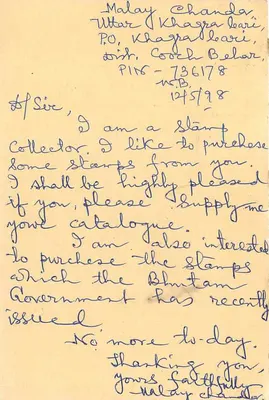 Malay Chanda,
Uttar Khagrabari,
P.O, Khagrabari,
Dist. Cooch Behar,
PIN - 736178
W.B.
12/5/98
D/Sir,
I am a stamp
collector. I like to purchese
some stamps from you.
I shall be highly pleased
if you, please supply me
your catalogue.
I am also interested
to purchese the stamps
which the Bhutan
Government has recently
issued.
No more to-day.
Thanking you,
yours faithfully
Malay Chanda.